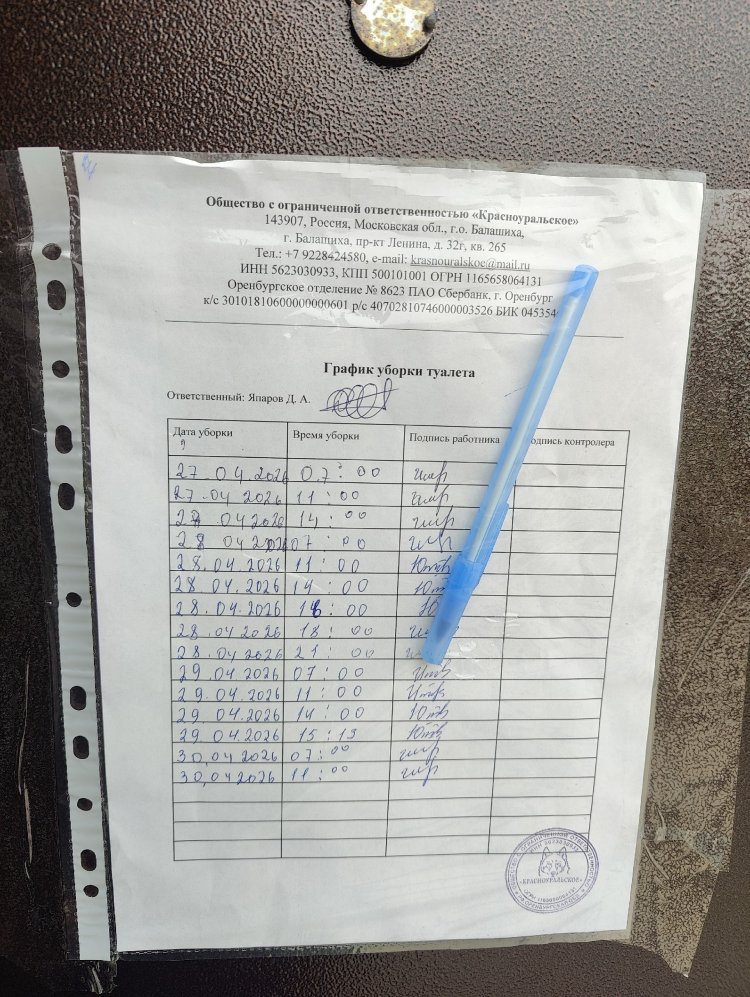 Общество с ограниченной ответственностью «Красноуральское»
143907, Россия, Московская обл., г.о. Балашиха,
г. Балашиха, пр-кт Ленина, д. 32г, кв. 265
Тел.: +7 9228424580, e-mail: krasnouralskoe@mail.ru
ИНН 5623030933, КПП 500101001 ОГРН 1165658064131
Оренбургское отделение № 8623 ПАО Сбербанк, г. Оренбург
к/с 30101810600000000601 р/с 40702810746000003526 БИК 045354
График уборки туалета
Ответственный: Япаров Д. А.
Дата уборки Время уборки Подпись работника одпись контролера
27.04.2026 07:00
27.04.2026 11:00
04.2026 14:00
28.04.2026 07:00
28.04.2026 11:00
28.04.2026 14:00
28.04.2026 :00
28.04.2026 18:00
28.04.2026 21:00
29.04.2026 07:00
29.04.2026 11:00
29.04.2026 14:00
29.04.2026 15:13
30.04.2026 07:00
30.04.2026 11:00
«КРАСНОУРАЛЬСКОЕ»